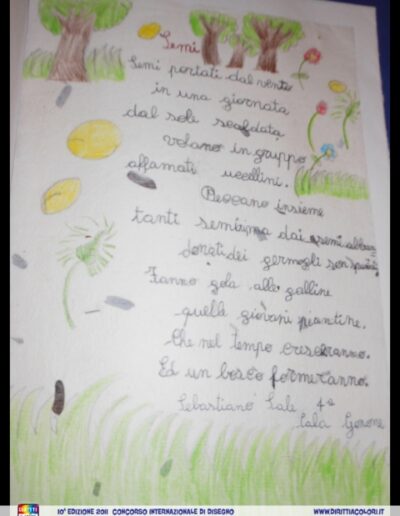 Semi
Semi portati dal vento
in una giornata
dal sole scaldata
volano in gruppo
affamati uccellini.
Beccano insieme
tanti sembima dai semi
donati dei germogli son
Fanno gola alle galline
quelle giovani piantine.
Che nel tempo cresceranno.
Ed un bosco formeranno.
Sebastiano Lale 4ª
Cala Gonone
10ª EDIZIONE 2011 CONCORSO INTERNAZIONALE DI DISEGNO
WWW.DIRITTIACOLORI.IT